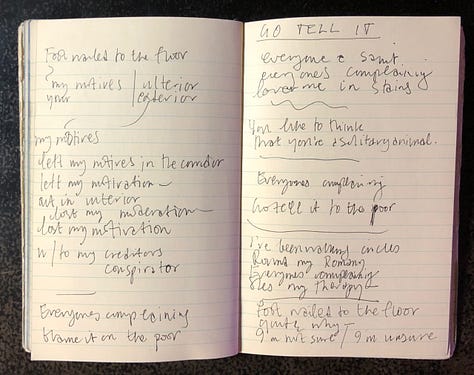 Foot nailed to the floor
my motives / ulterior
your exterior
my motives
left my motives in the corridor
left my motivation
in interior
lost my moderation
lost my motivation
w/ to my creditors
conspirator
Everyones complaining
blame it on the poor
GO TELL IT
everyone a saint
everyones complaining
me in stains
You like to think
that you're a solitary animal.
Everyones complaining
Go tell it to the poor
I've been walking circles
Round my
Everyones complaining
my therapy
Foot nailed to the floor
quite why
I'm not sure / I'm unsure